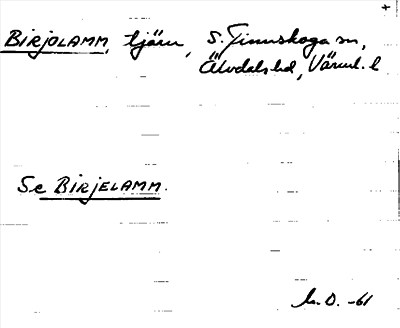 +
BIRJOLAMM, tjärn, S. Finnskoga sn,
Älvdals hd, Värml. l
Se BIRJELAMM.
-61